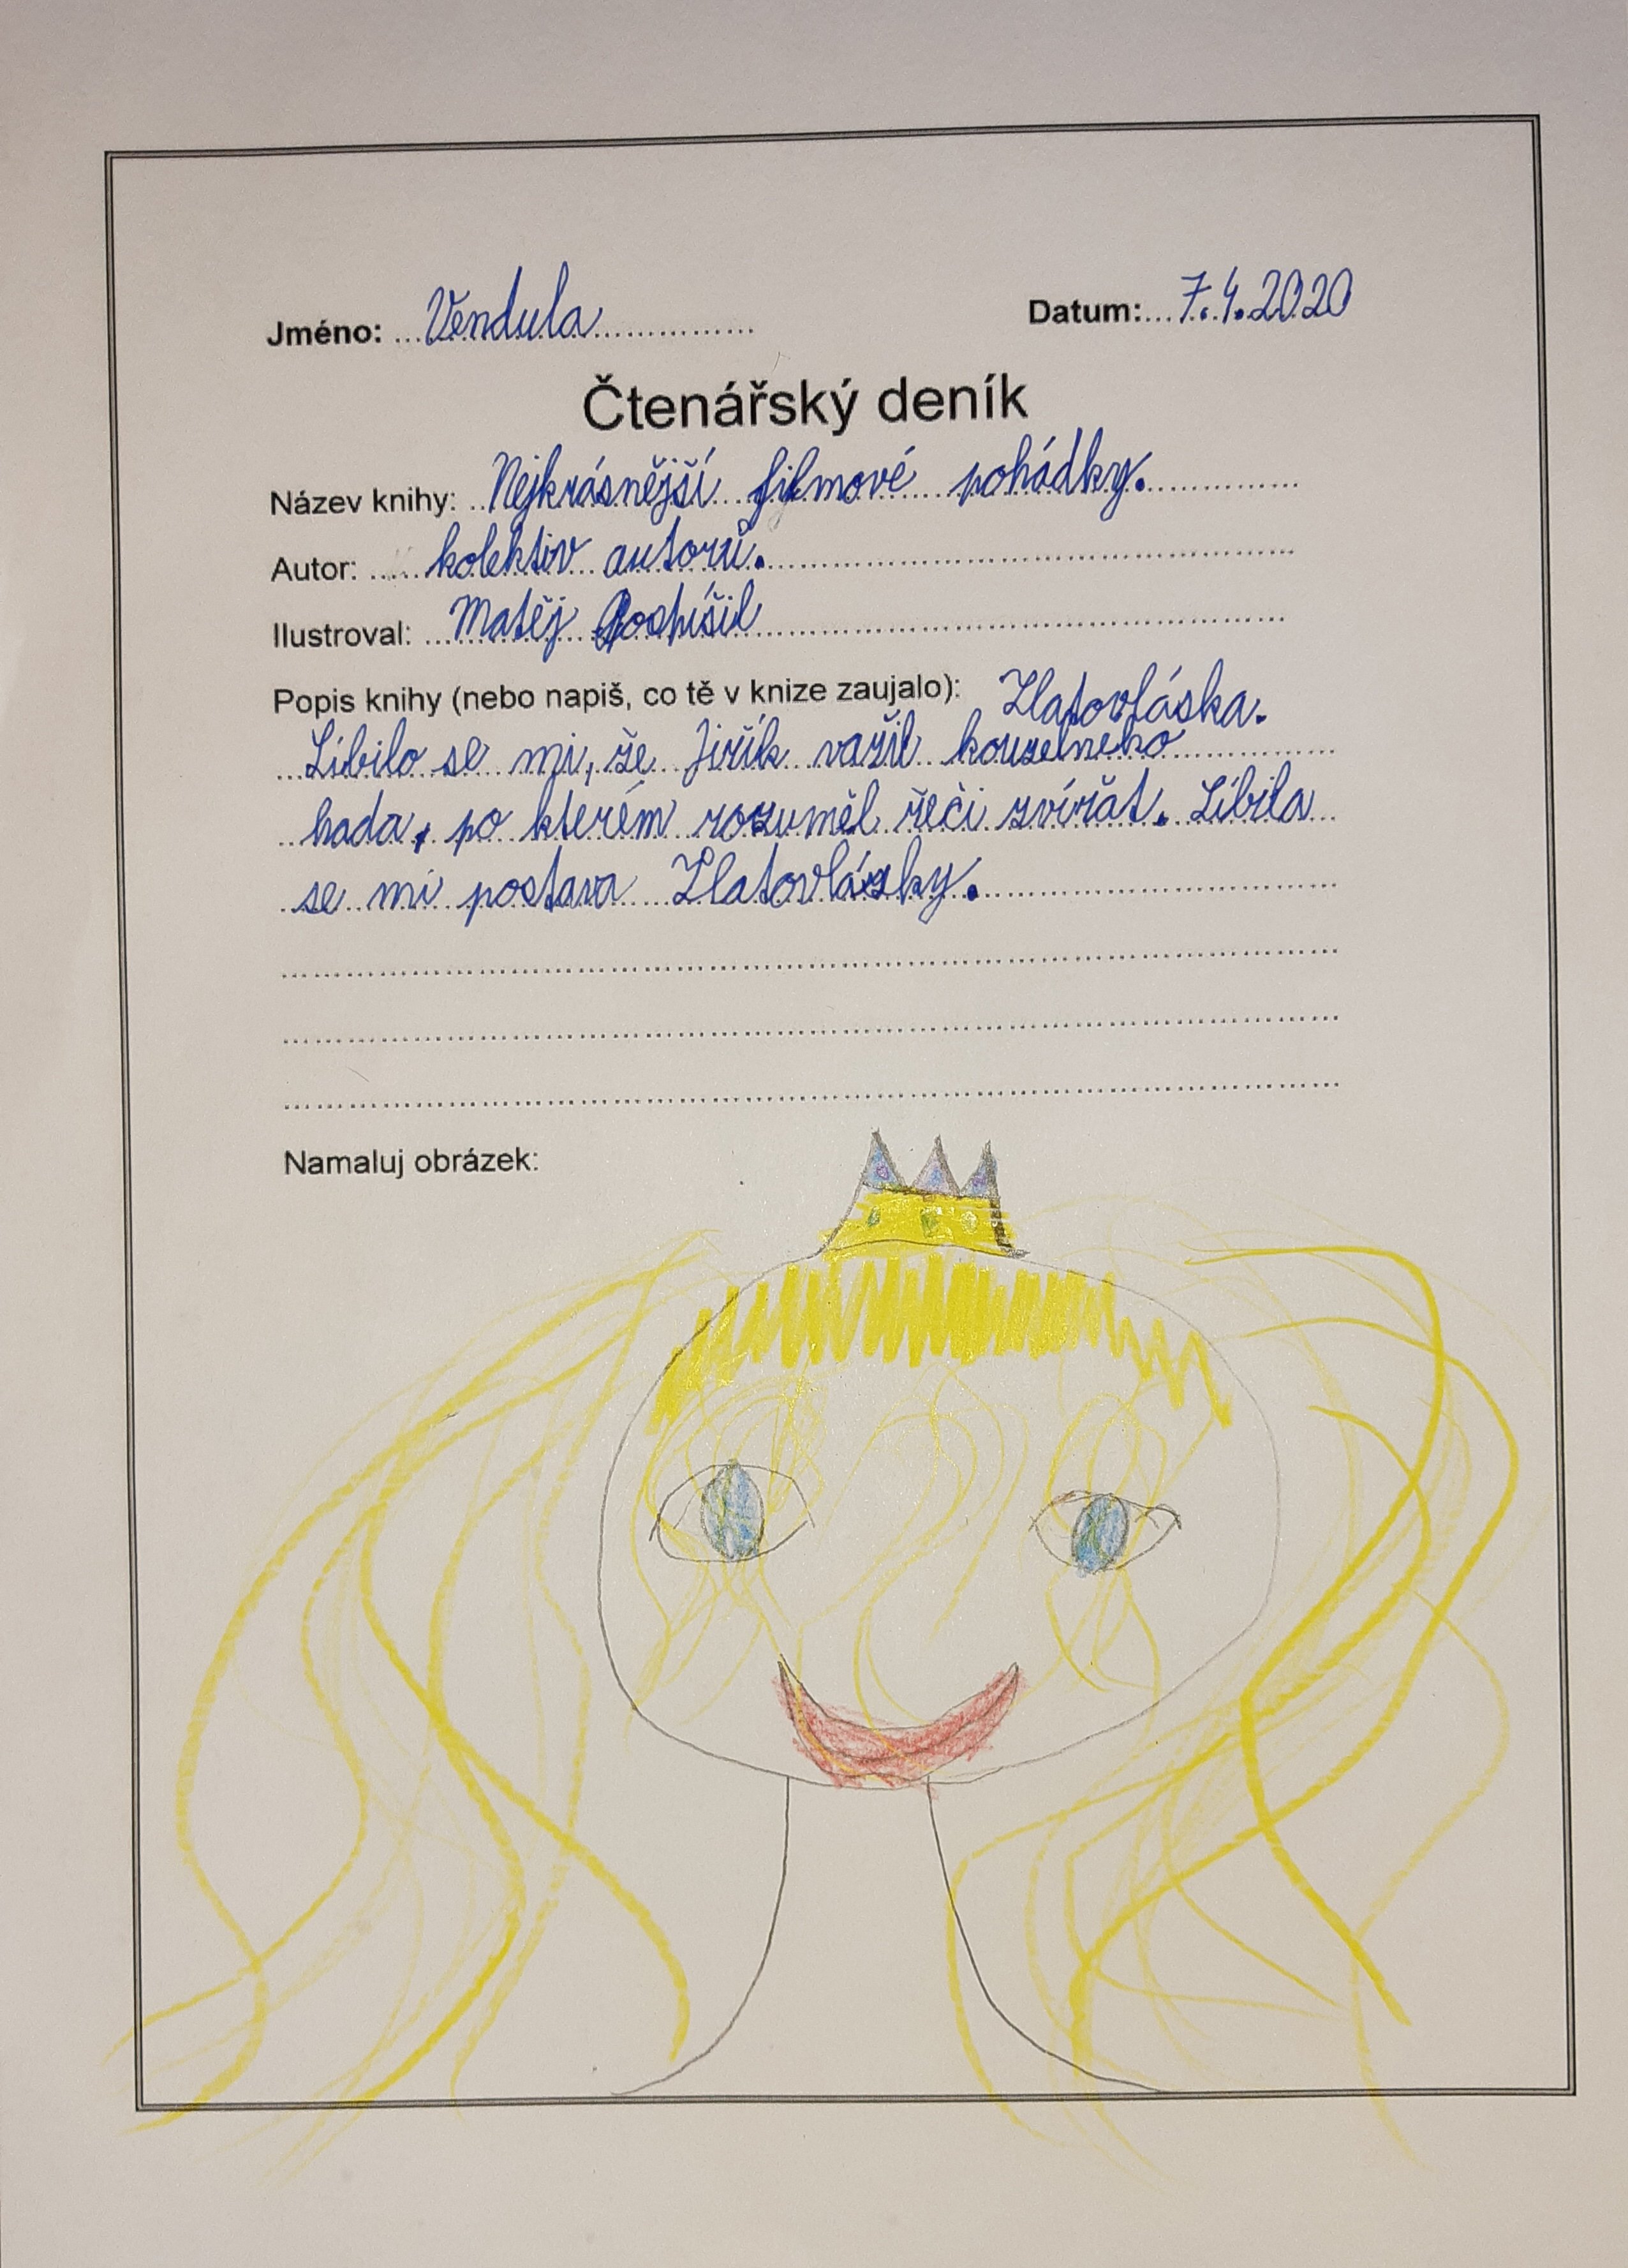 Jméno: Vendula Datum: 7.4.2020
Čtenářský deník
Název knihy: Nejkrásnější filmové pohádky.
Autor: kolektiv autorů.
Ilustroval: Matěj Pospíšil
Popis knihy (nebo napiš, co tě v knize zaujalo): Zlatovláska.
Líbilo se mi, že Jiřík vařil kouzelneho
hada, po kterém rozuměl řeči zvířat. Líbila
se mi postava Zlatovlásky.
Namaluj obrázek: